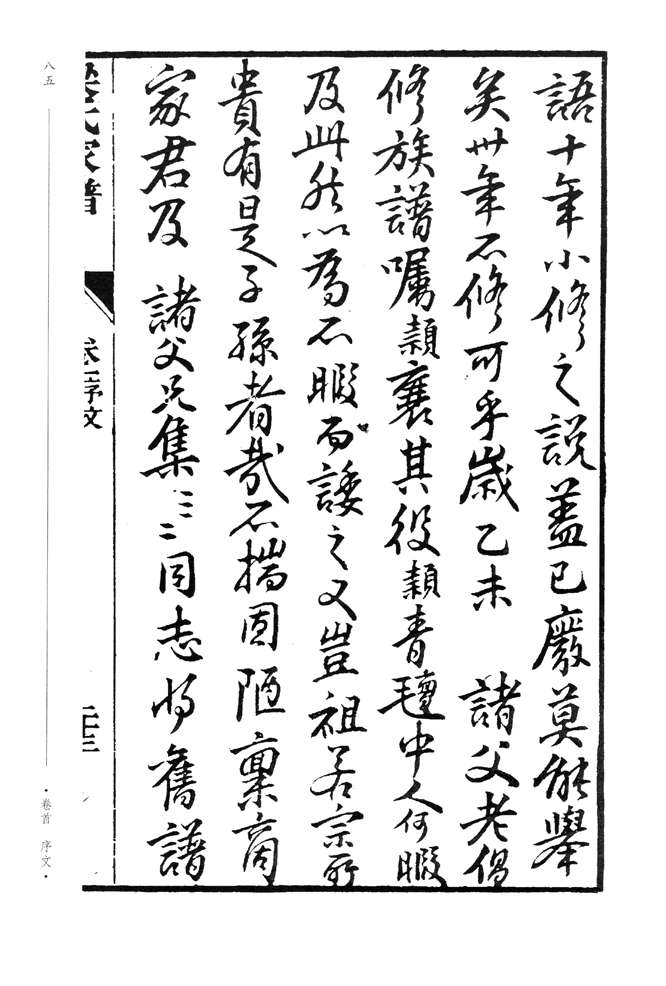 語十年小修之說蓋已廢莫能舉
矣卅年不修可乎歲乙未 諸父老倡
修族譜囑頴襄其役頴青氊中人何暇
及此然以為不暇而諉之又豈祖若宗所
貴有是子孫者哉不揣固陋稟商
家君及 諸父兄集二三同志將舊譜
氏家譜
卷一序文
二十三
八五
·卷首 序文·